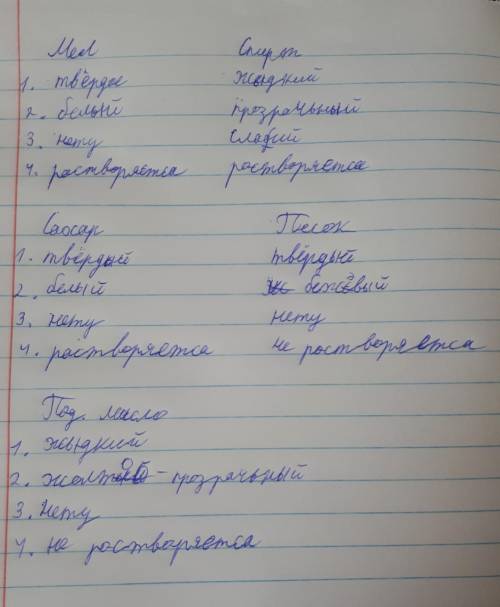 Мел Спирт
1. твёрдое жыдкий
2. белый прозрачьный
3. нету слабий
4. растворяетса растворяетса
Саохар Песок
1. твёрдый твёрдый
2. белый бежевый
3. нету нету
4. растворяетса не растворяетса
Под. масло
1. жыдкий
2. жолто-прозрачьный
3. нету
4. не растворяетса